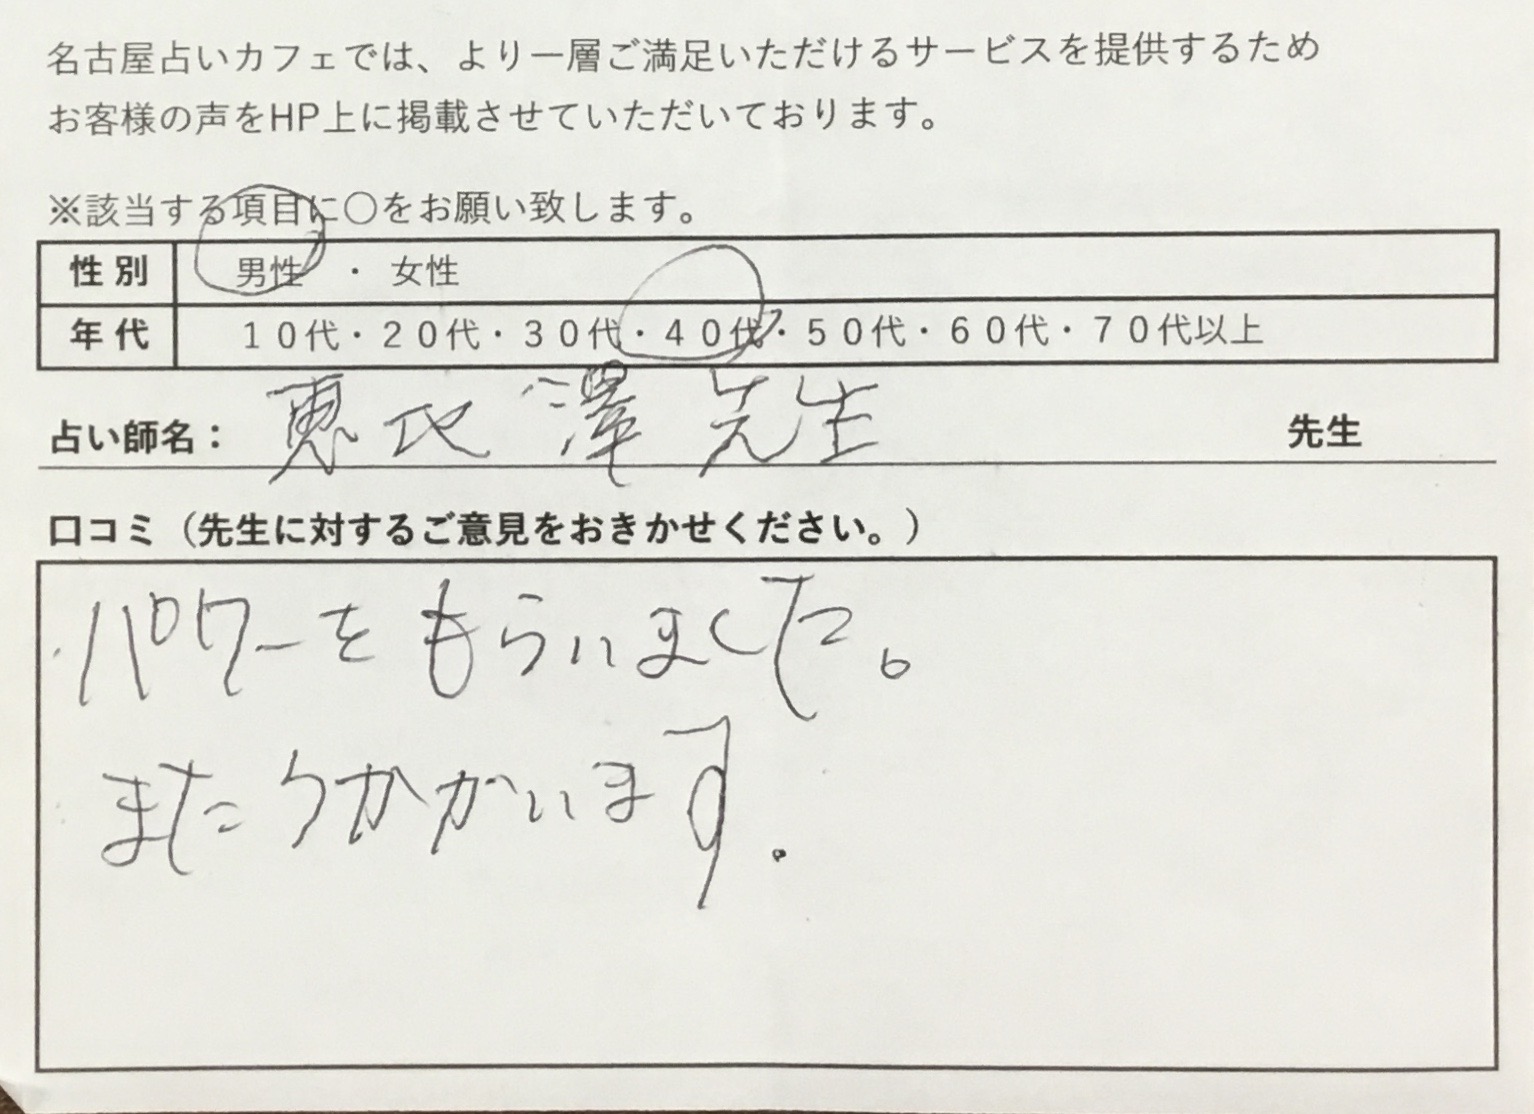 名古屋占いカフェでは、より一層ご満足いただけるサービスを提供するため
お客様の声をHP上に掲載させていただいております。
※該当する項目に〇をお願い致します。
性別 男性 ・ 女性
年代 10代・20代・30代・40代・50代・60代・70代以上
占い師名： 恵比澤 先生 先生
口コミ（先生に対するご意見をおきかせください。）
パワーをもらいました。
またうかがいます.